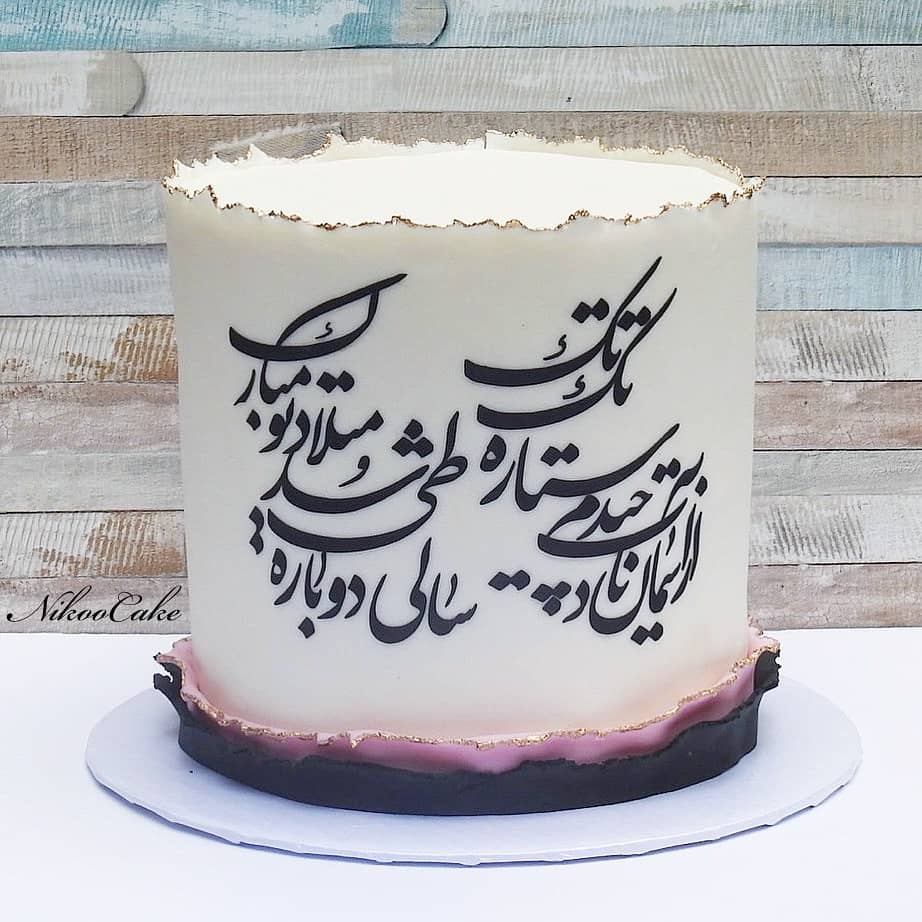 از آسمان یادت
چیدم ستاره تک تک
سالی دوباره طی شد
میلاد تو مبارک
NikooCake